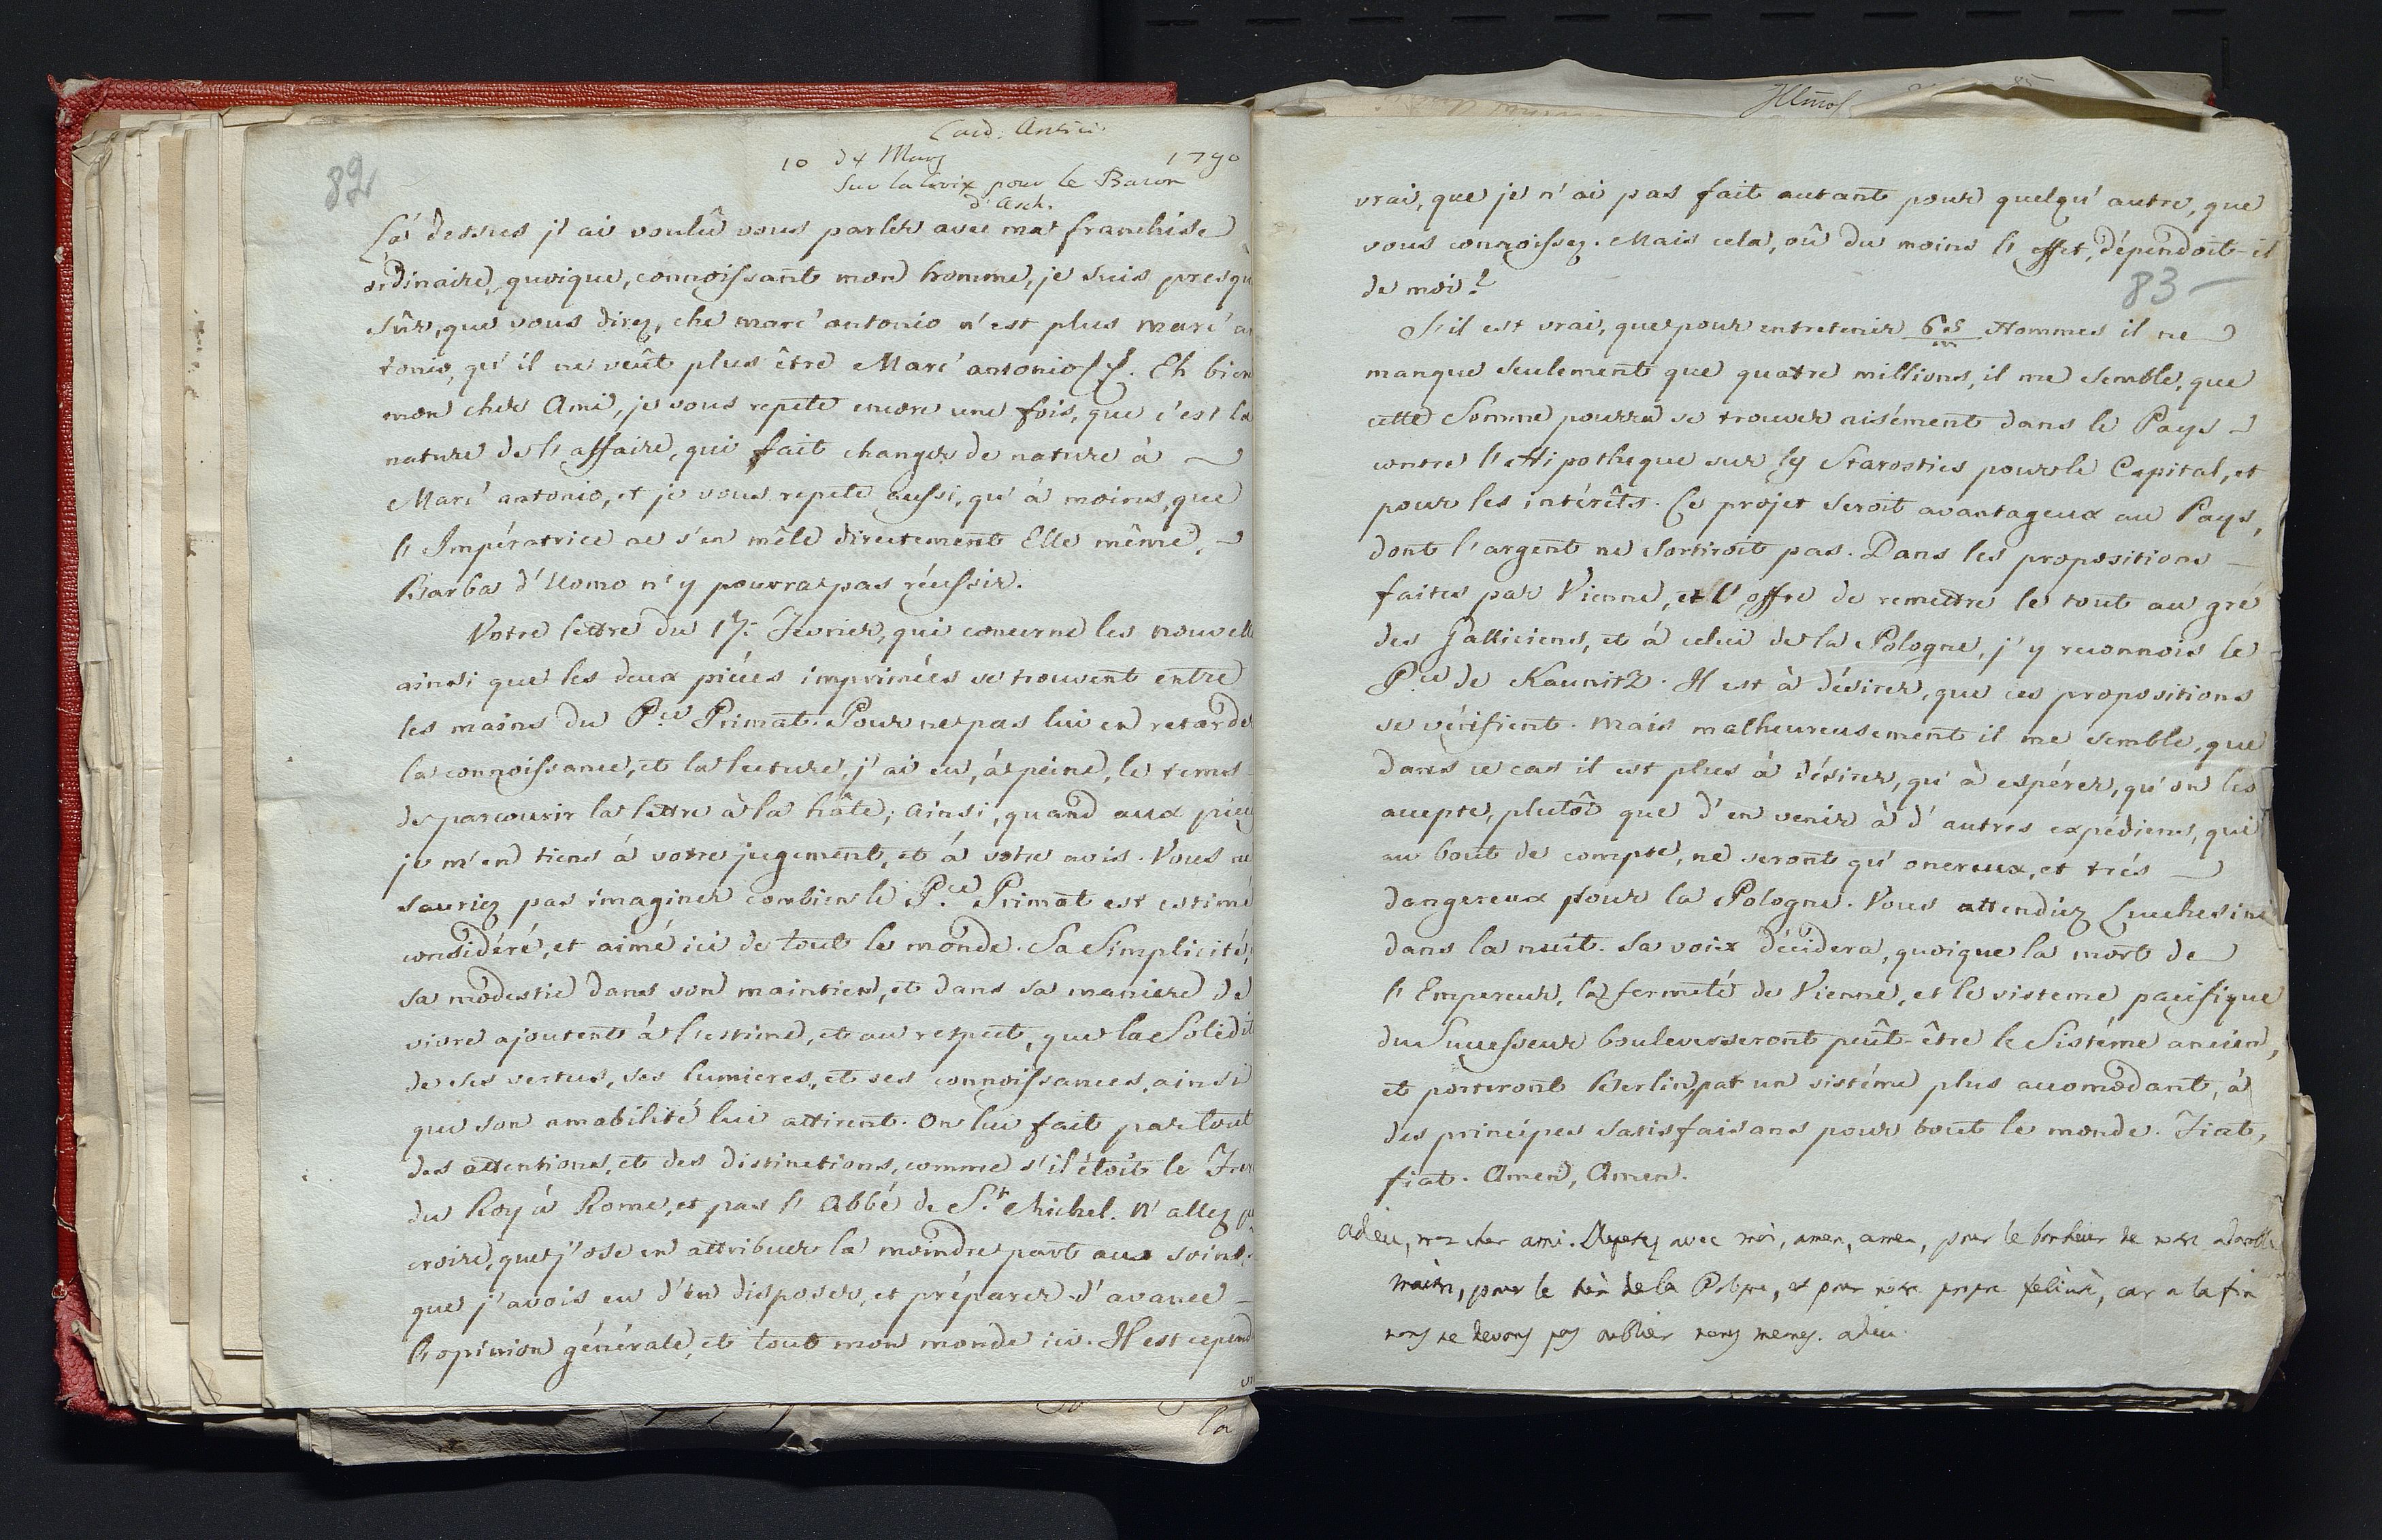 82
Card: Antici
10 d4 Mars 1790
Sur la Croix pour le Baron
d'Asch.
Là dessus j'ai voulû vous parler avec ma franchise
ordinaire, quoique, connoissant mon homme, je suis presqu
sûr, que vous direz, che Marc' antonio n'est plus Marc' an
tonio, qu'il ne veût plus être Marc' antonio. Eh bien
mon cher Ami, je vous repete encore une fois, que c'est la
nature de l'affaire, qui fait changer de nature à
Marc' antonio, et je vous repete aussi, qu'à moins, que
l'Impératrice ne s'en mêle directement Elle même,
Barba d'Uomo n'y pourra pas réussir.
Votre lettre du 17. Fevrier, qui concerne les nouvelle
ainsi que les deux piéces imprimées se trouvent entre
les mains du P.ce Primat. Pour ne pas lui en retarder
la connoissance, et la lecture, j'ai eu, à peine, le tems
de parcourir la lettre à la hâte; ainsi, quand aux piec
je m'en tiens à votre jugement, et à votre avis. Vous ne
sauriez pas imaginer combien le P.ce Primat est estimé
considéré, et aimé ici de tout le monde. Sa Simplicité,
sa modestie dans son maintien, et dans sa maniere de
vivre ajoutent à l'estime, et au respect, que la Solidit
de ses vertus, ses lumieres, et ses connoissances, ainsi
que son amabilité lui attirent. On lui fait par tout
des attentions, et des distinctions, comme s'il étoit le Frer
du Roy à Rome, et pas l'Abbé de S.t Michel. N'allez pa
croire, que j'ose en attribuer la moindre part aux soins,
que j'avois eu d'en disposer, et préparer d'avance
l'opinion générale, et tout mon monde ici. Il est cepend
la
vrai, que je n'ai pas fait autant pour quelqu'autre, que
vous connoissez. Mais cela, où du moins l'effet, dépendoit-il
de moi?
83
S'il est vrai, que pour entretenir 65 m Hommes il ne
manque seulement que quatre millions, il me semble, que
cette Somme pourra se trouver aisément dans le Pays
contre l'Hipotheque sur les Starosties pour le Capital, et
pour les intérêts. Ce projet seroit avantageux au Pays,
dont l'argent ne sortiroit pas. Dans les propositions
faites par Vienne, et l'offre de remettre le tout au gré
des Galliciens, et à celui de la Pologne, j'y reconnois le
P.ce de Kaunitz. Il est à désirer, que ces propositions
se vérifient. Mais malheureusement il me semble, que
dans ce cas il est plus à désirer, qu'à espérer, qu'on les
accepte, plutôt que d'en venir à d'autres expédiens, qui
au bout de compte, ne seront qu'onereux, et très
dangereux pour la Pologne. Vous attendiez Lucchesini
dans la nuit. Sa voix décidera, quoique la mort de
l'Empereur, la fermeté de Vienne, et le sisteme pacifique
du Successeur bouleverseront peût-être le Sistéme ancien,
et porteront Berlin, par un sistéme plus accomodant, à
des principes satisfaisans pour tout le monde. Fiat,
fiat. Amen, Amen.
adieu, mon cher ami. Repetez avec moi, amen, amen, pour le bonheur de notre adorable
maitre, pour le bien de la Pologne, et pour notre propre felicité, car a la fin
nous ne devons pas oublier nous memes. adieu.